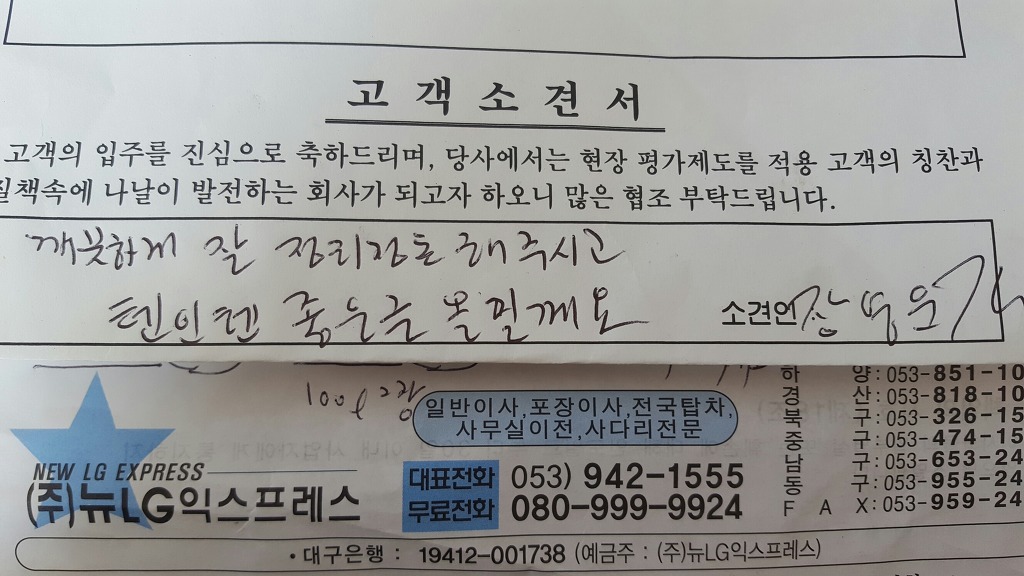 고 객 소 견 서
고객의 입주를 진심으로 축하드리며, 당사에서는 현장 평가제도를 적용 고객의 칭찬과
질책속에 나날이 발전하는 회사가 되고자 하오니 많은 협조 부탁드립니다.
깨끗하게 잘 정리정돈 해주시고
텐인텐 좋은글 올릴께요
소견인 장
일반이사,포장이사,전국탑차,
사무실이전,사다리전문
NEW LG EXPRESS
(주)뉴LG익스프레스
대표전화 053) 942-1555
무료전화 080-999-9924
하 양: 053-851-10
경 산: 053-818-10
북 구: 053-326-15
중 구: 053-474-15
남 구: 053-653-24
동 구: 053-955-24
F A X: 053-959-24
• 대구은행 : 19412-001738 (예금주 : (주)뉴LG익스프레스)